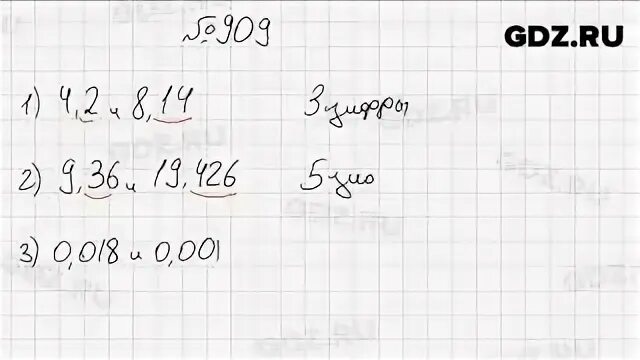 №909
GDZ.RU
1) 4,2 и 8,14 3 цифры
2) 9,36 и 19,426 5 ци
3) 0,018 и 0,001